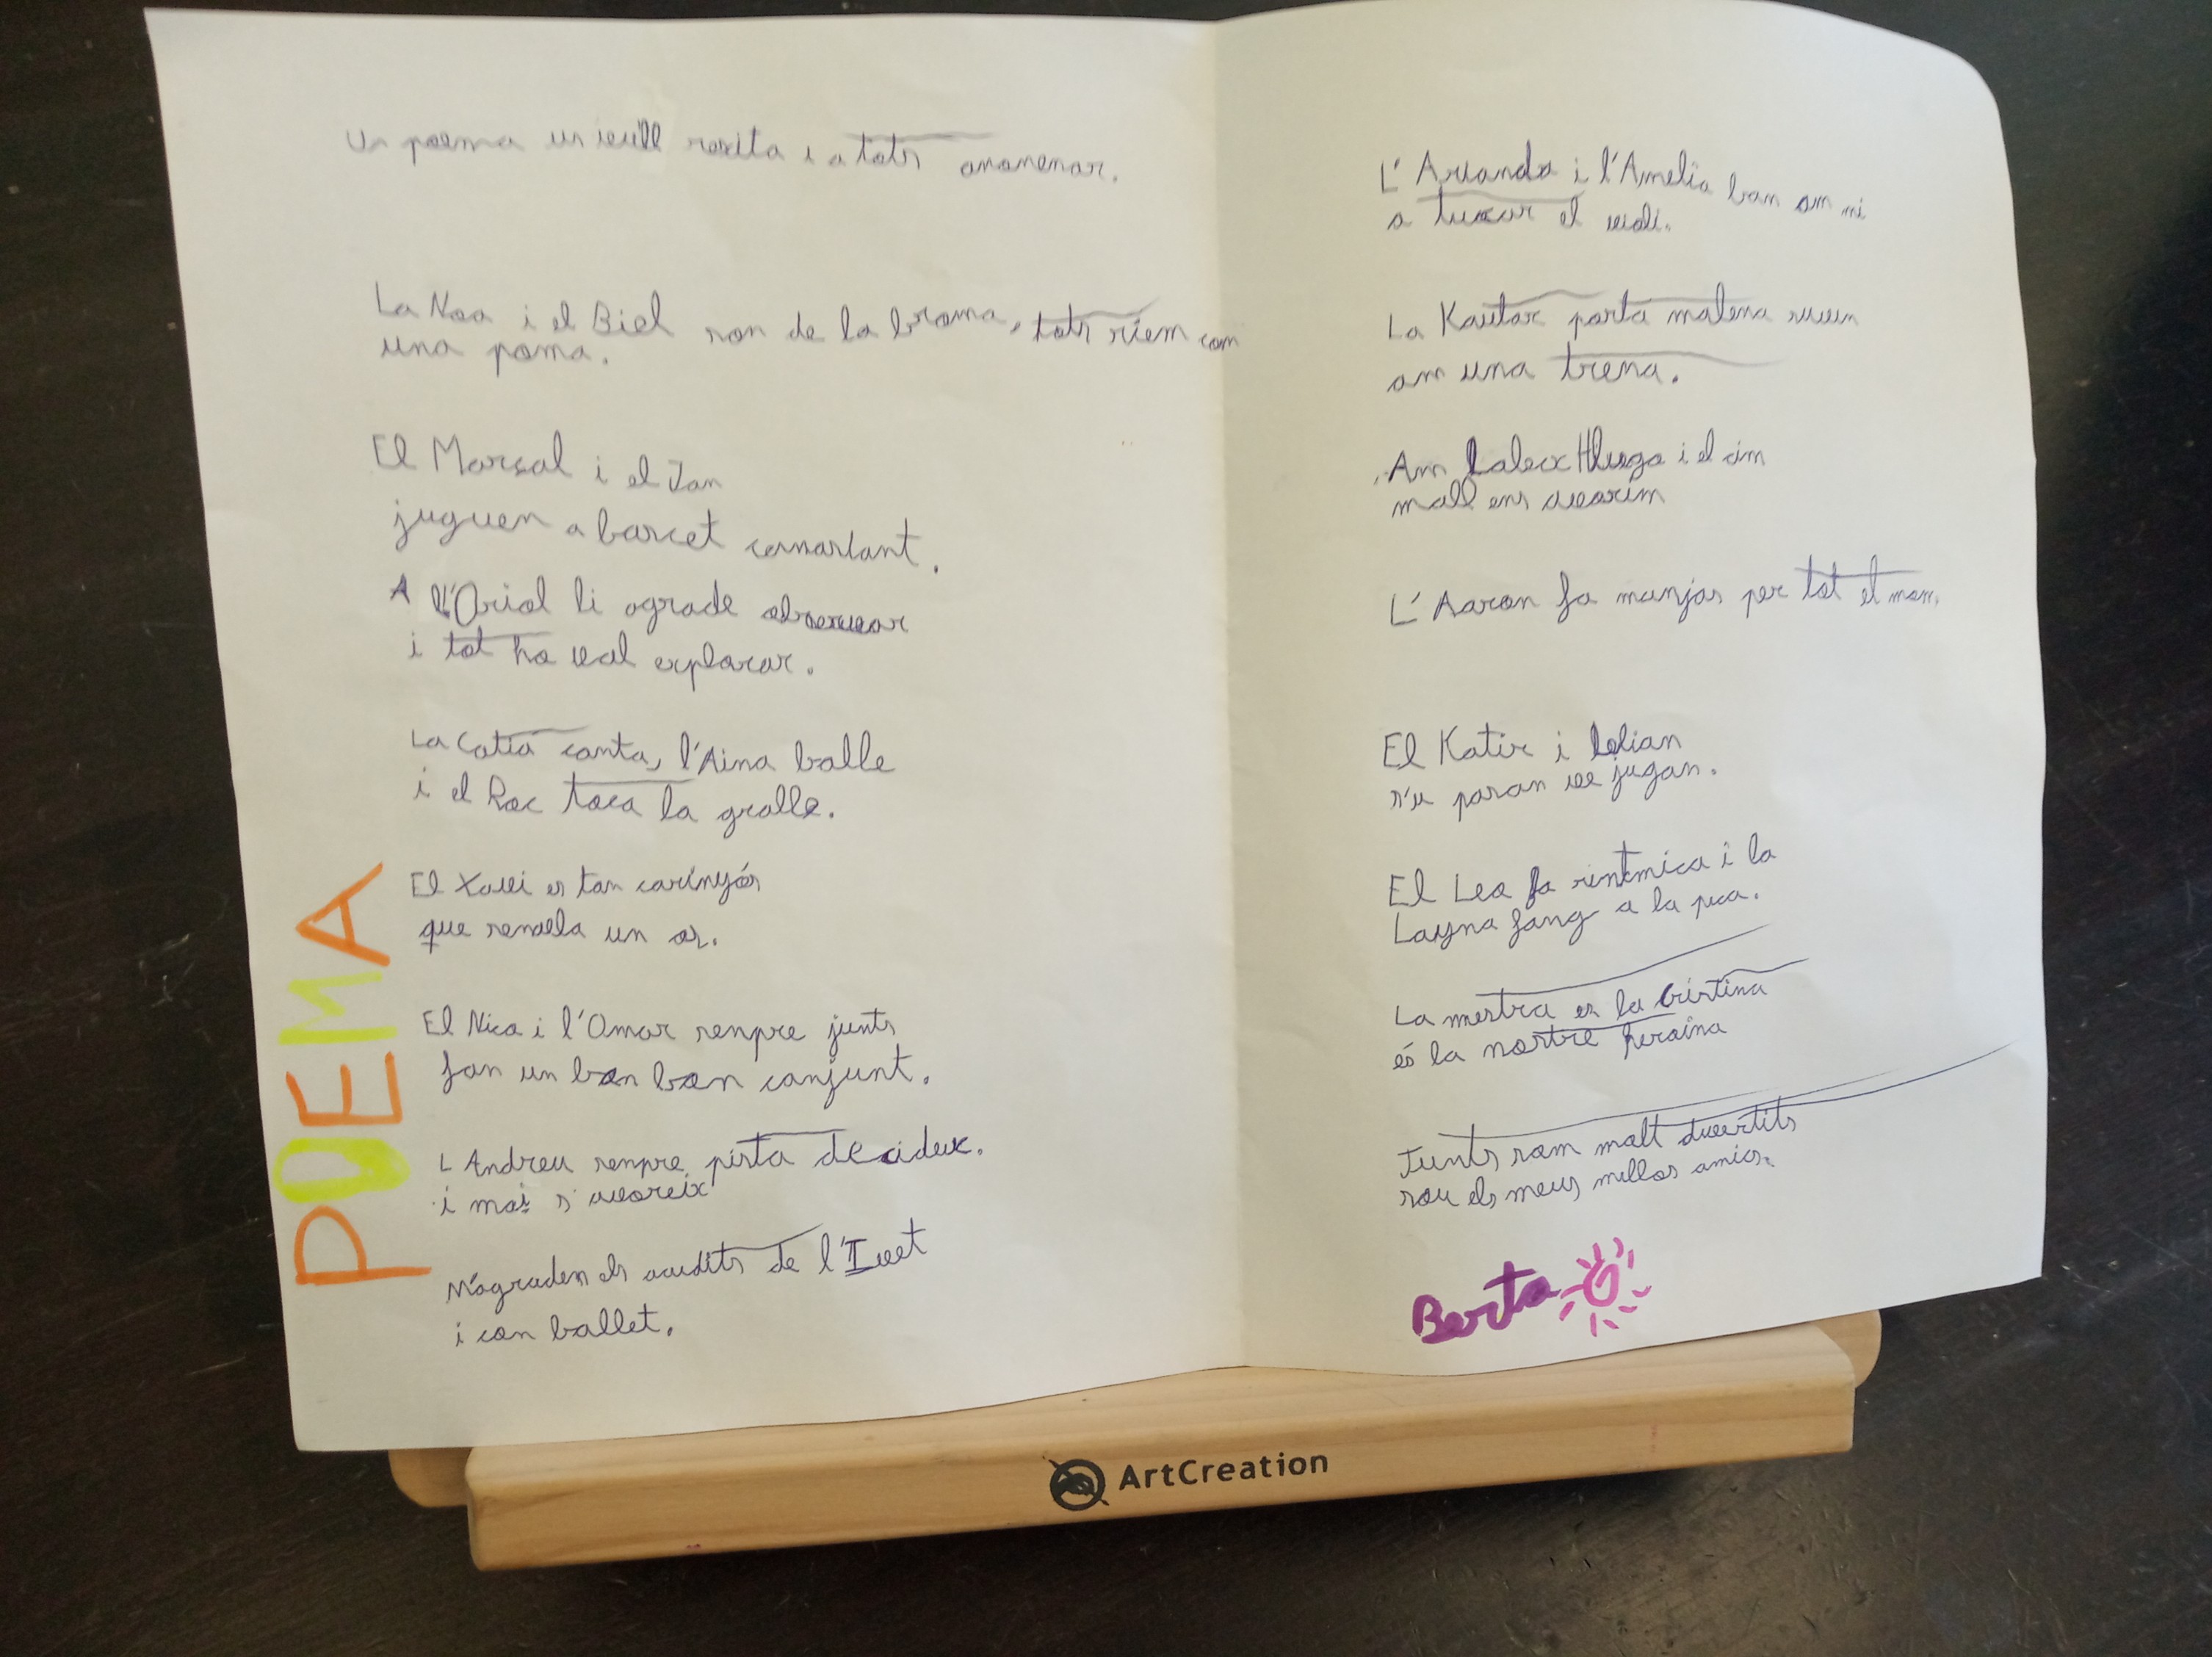 POEMA
Un poema us vull resita i a tots anomenar.
La Noa i el Biel son de la broma, tots riem com
una poma.
El Marsal i el Jan
juguen a barcet constant.
A l'Oriol li agrade observar
i tot ho vol explorar.
La Catia canta, l'Aina balle
i el Roc toca la gralle.
El Xavi es tan carinyós
que sembla un os.
El Nico i l'Omar senpre junts
fan un bon bon conjunt.
L Andreu senpre pista decideix.
i mai s'avoreix
M'agraden els acudits de l'Ivet
i con ballet.
L'Arianda i l'Amelia ban am mi
a tucar el violi.
La Kautar porta malena
am una trena.
Am Laleix Hugo i el cim
mall ens avorim
L'Aaron fa munjos per tot el mon.
El Katir i lelian
s'u paran ve jugan.
El Leo fa rintmica i la
Layna fang a la pica.
La mestra es la Cristina
és la nostre heroina
Junts som molt divertits
sou els meus millos amics.
Berta
ArtCreation